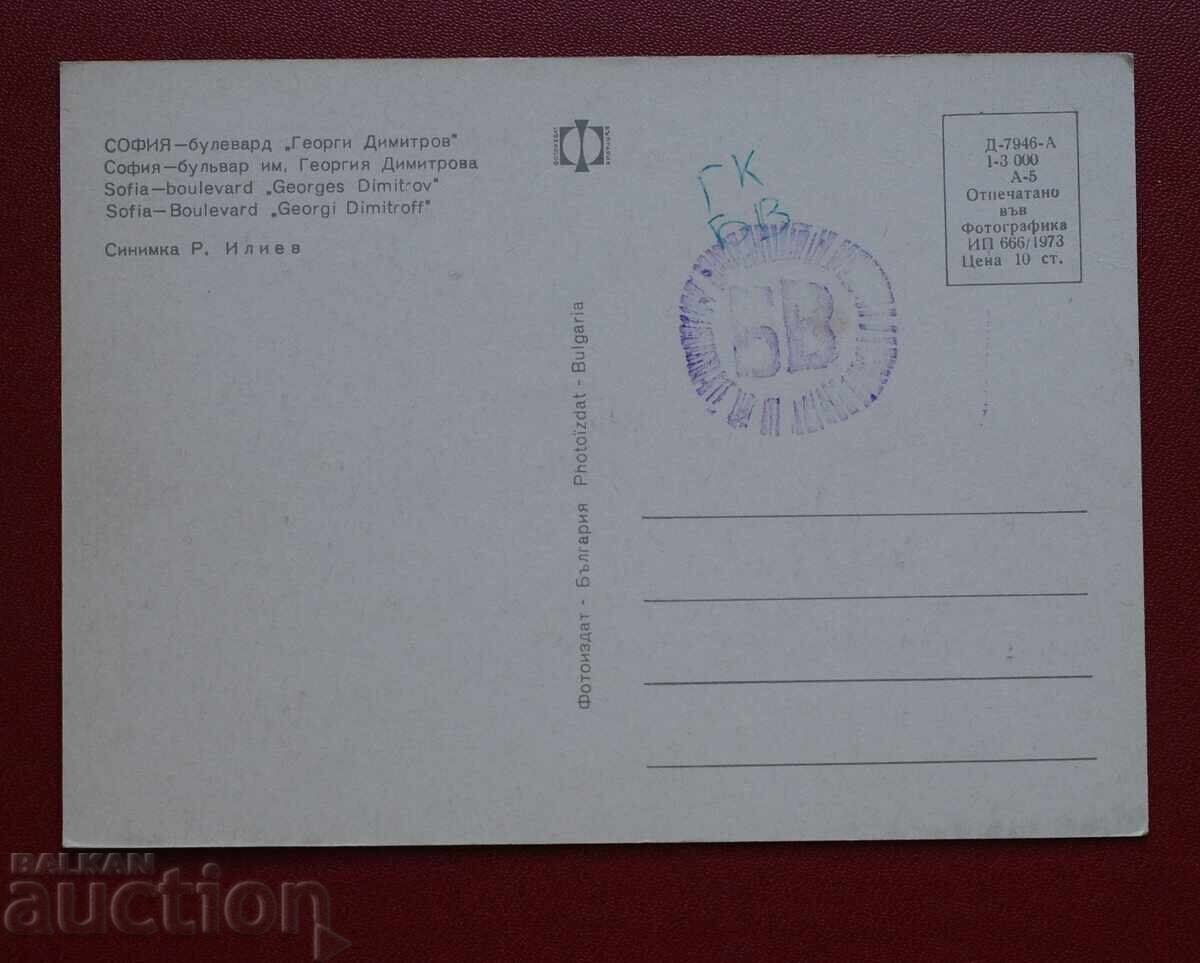 СОФИЯ—булевард „Георги Димитров"
София—бульвар им, Георгия Димитрова
Sofia—boulevard „Georges Dimitrov"
Sofia—Boulevard „Georgi Dimitroff"
Синимка Р. Илиев
Фотоиздат - България Photoïzdat - Bulgaria
ГК
БВ
БВ
Д-7946-А
1-3 000
А-5
Отпечатано
във
Фотографика
ИП 666/1973
Цена 10 ст.
BALKAN
auction